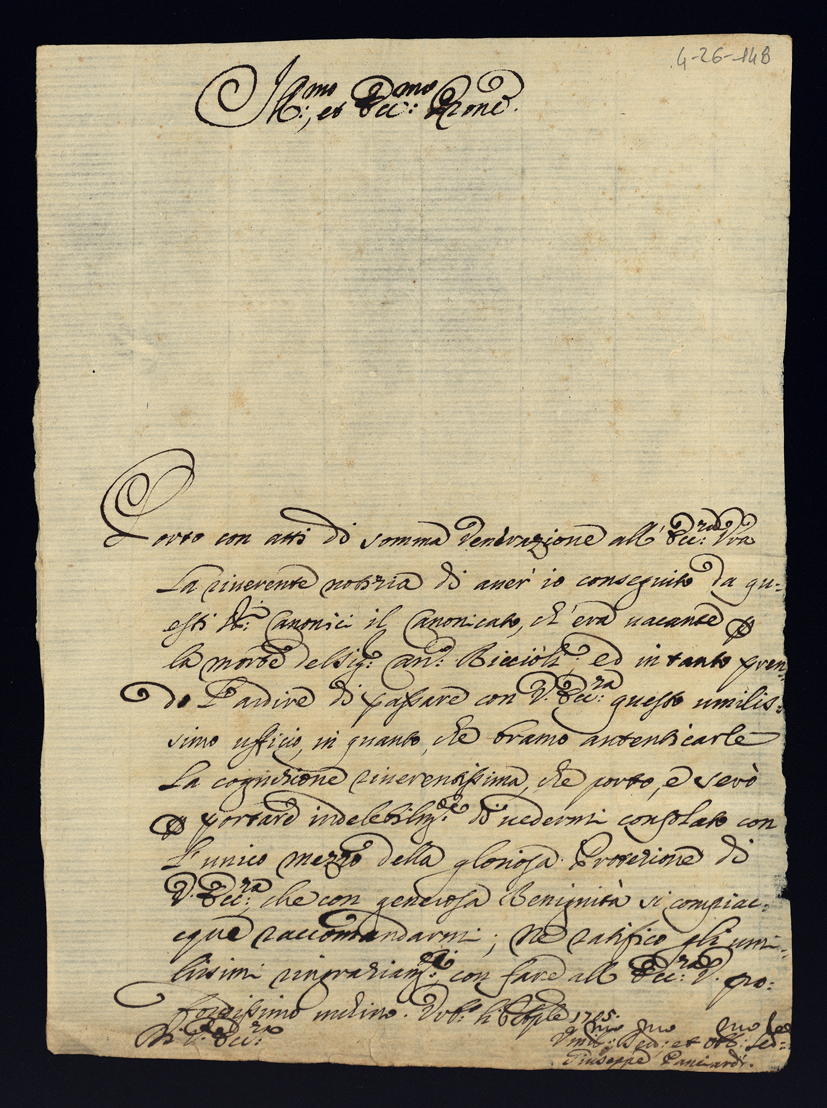 4-26-148
Ill:mo, et Ecc:mo Prone.
Porto con atti di somma venerazione all' Ecc:za Vra
La riverente notizia di aver' io conseguito da qu-
esti SS:ri Canonici il Canonicato, ch' era vacante p
la morte del Sig:r An:o Riccioli; ed in tanto pren-
do L'ardire di passare con V. Ecc:za questo umilis-
simo ufficio, in quanto, che bramo autenticarle
La cognizione riverentissima, che porto, e serò
p portare indelebilm:te di vedermi consolato con
L'unico mezzo della gloriosa Protezione di
V. Ecc:za, che con generosa Benignità si compiac-
cque raccomandarmi; Ne ratifico gli umi-
lissimi ringraziam:ti con fare all' Ecc:za V. pro-
fondissimo inchino. 1705.
Di V. Ecc:za
Umil:mo Dev:mo et Obb:mo Ser:
Giuseppe